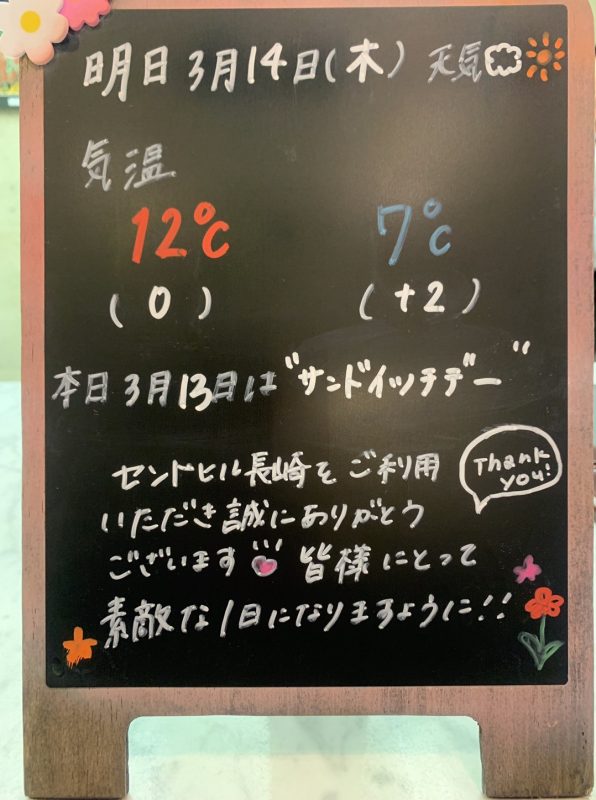 明日3月14日(木) 天気
気温
12℃ 7℃
(0) (+2)
本日3月13日は"サンドイッチデー"
センドヒル長崎をご利用
いただき誠にありがとう
ございます 皆様にとって
素敵な1日になりますように!!
Thank
you!